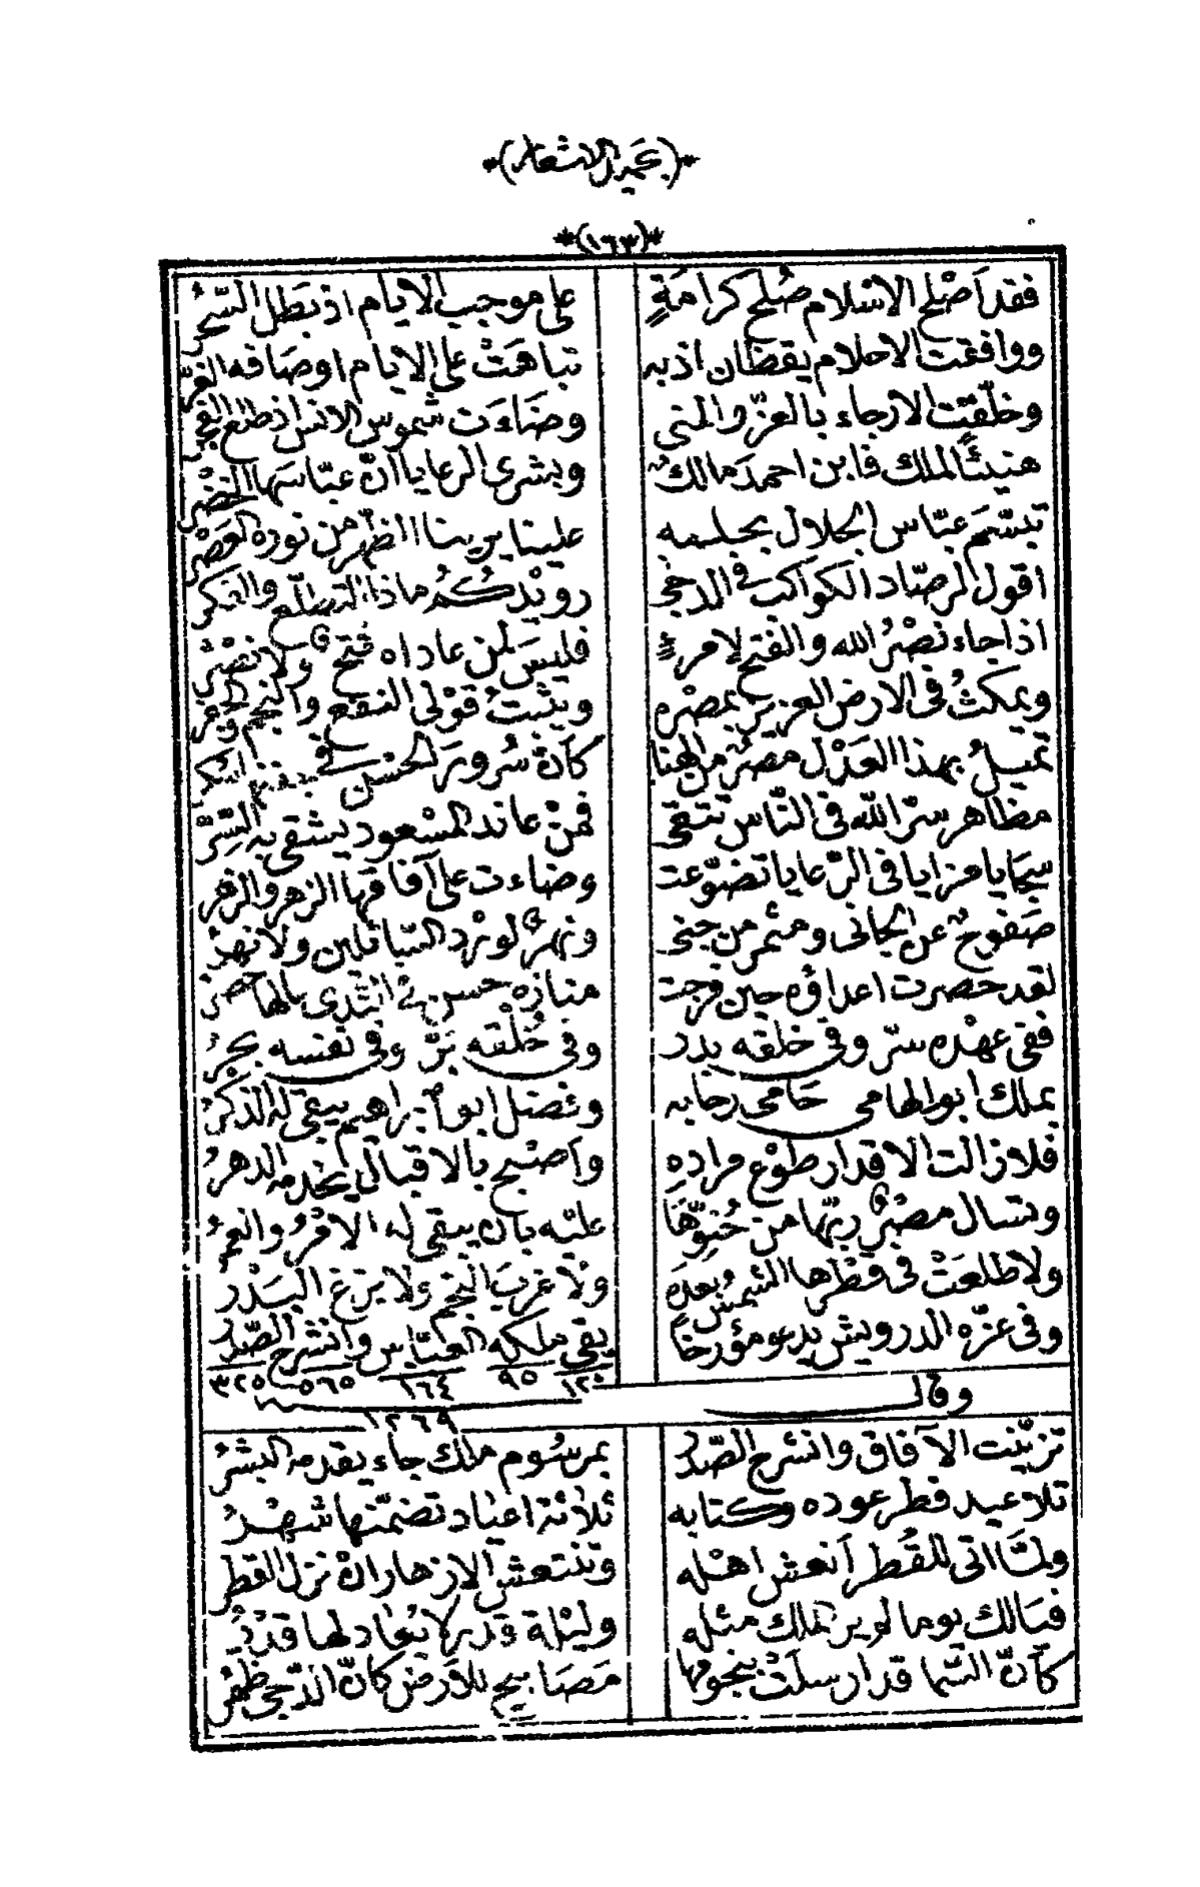 *(بحميل الاشعار)*
*(١٦٣)*
فقد اَصْلح الاسْلام صُلح كرامةٍ على موجب الايام اذ بَطل السّحرُ
ووافقت الاحلام يقظان اذ به تباهَتْ على الايام اوصافه الغرّ
وخلّقَت الارجاء بالعزّ والمنى وضَاءَت شموس الانس اذ طلع الفجر
هنيئًا لملك فابن احمدَ مالكٌ وبشرى الرعايا انّ عبّاسَها الخضْر
تبسّمَ عبّاس الجلال بجلسه علينا يرينا الظهر من نوره العَصْر
اقول لرصّاد الكواكب فى الدجى رويْدكُمُ ماذا التطلّع والفكر
اذا جاء نصْرُ الله والفتح لامرءٍ فليسَ لمن عاداه فتحٌ ولا نصْرُ
ويمكثُ فى الارض العزيز بمصْره ويثبتُ قوْلى النفع والنجم والحجر
تميلُ بهذا العَدْل مصرٌ من الهنا كأنّ سُرورَ الحسْن فى سكر
مظاهر سرّ الله فى النّاس تتقى فمنْ عاند المسْعود يشقى به السِّرّ
سجايا مزايا فى الرّعايا تضوّعت وضاءت على آفاقها الزهر والزهر
صَفوحٌ عن الجانى ومثمر من جنى ونهرٌ لورْد السّائلين ولا نهرُ
لقد حصرت اعداؤه حين فرجت منازه حسن فى الثدى بالها حصر
ففى عهْده سرّ وفى خلقه بدر وفى خُلْقه برّ وفى نفسه بحرُ
بملك ابو الهامى حَامى رحابه وفضل ابو ابراهيم يبقى له الذكرُ
فلا زالت الاقدار طوْع مرادِهِ واَصْبح بالاقبال يخدمه الدهرُ
وتسال مصْرٌ ربّها من حُنوِّها عليْه بان يبقى له الامْرُ والعمرُ
ولا طلعَتْ فى قطرها الشمسُ بُعدَه ولا غربَ النجم ولا بزغ البَدْرُ
وفى عزّه الدرويش يدعو مؤرخًا بقى ملكه العبّاس وانشرح الصّدرُ
١٢٠ ٩٥ ١٦٤ ٥٦٥ ٣٢٥
وقال
سنة ١٢٦٩
تزيّنت الآفاق وانشرح الصّدر بمرسُوم ملك جاء يقدمه البشرُ
تلا عيد فطر عوده وكتابه ثلاثة اعياد تضمّنها شهْرُ
ولمّا اتى للقُطر اَنعش اهْله وتنتعش الازهار انْ نزل القطرُ
فيالك يوما لم ير الملك مثله وليْلة قدر لا يُعاد لها قدْرُ
كاَنّ السّما قد ارسلَتْ بنجومها مَصَابيح للارض كانّ الدّجى ظهْرُ